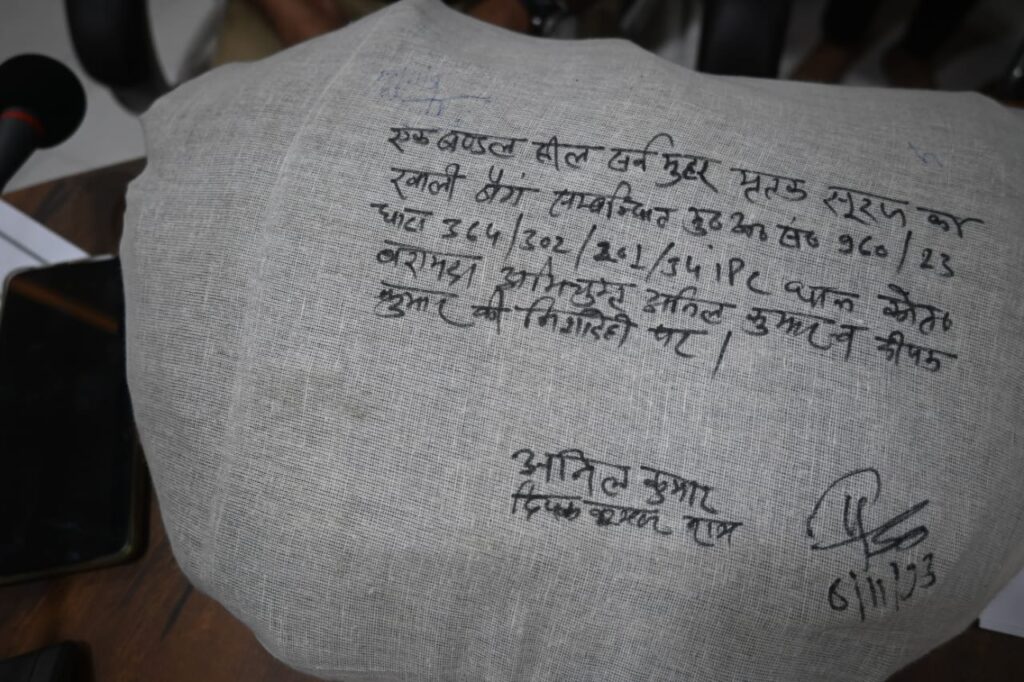 एक बण्डल सील सर्व मुहर मृतक सूरज का
खाली बैग सम्बन्धित मु०अ०सं० 960/23
धारा 364/302/201/34 IPC थाना कोत०
बरामदा अभियुक्त अनिल कुमार व दीपक
कुमार की निशांदेही पर।
अनिल कुमार
दिपक कुमार राम
6/11/23